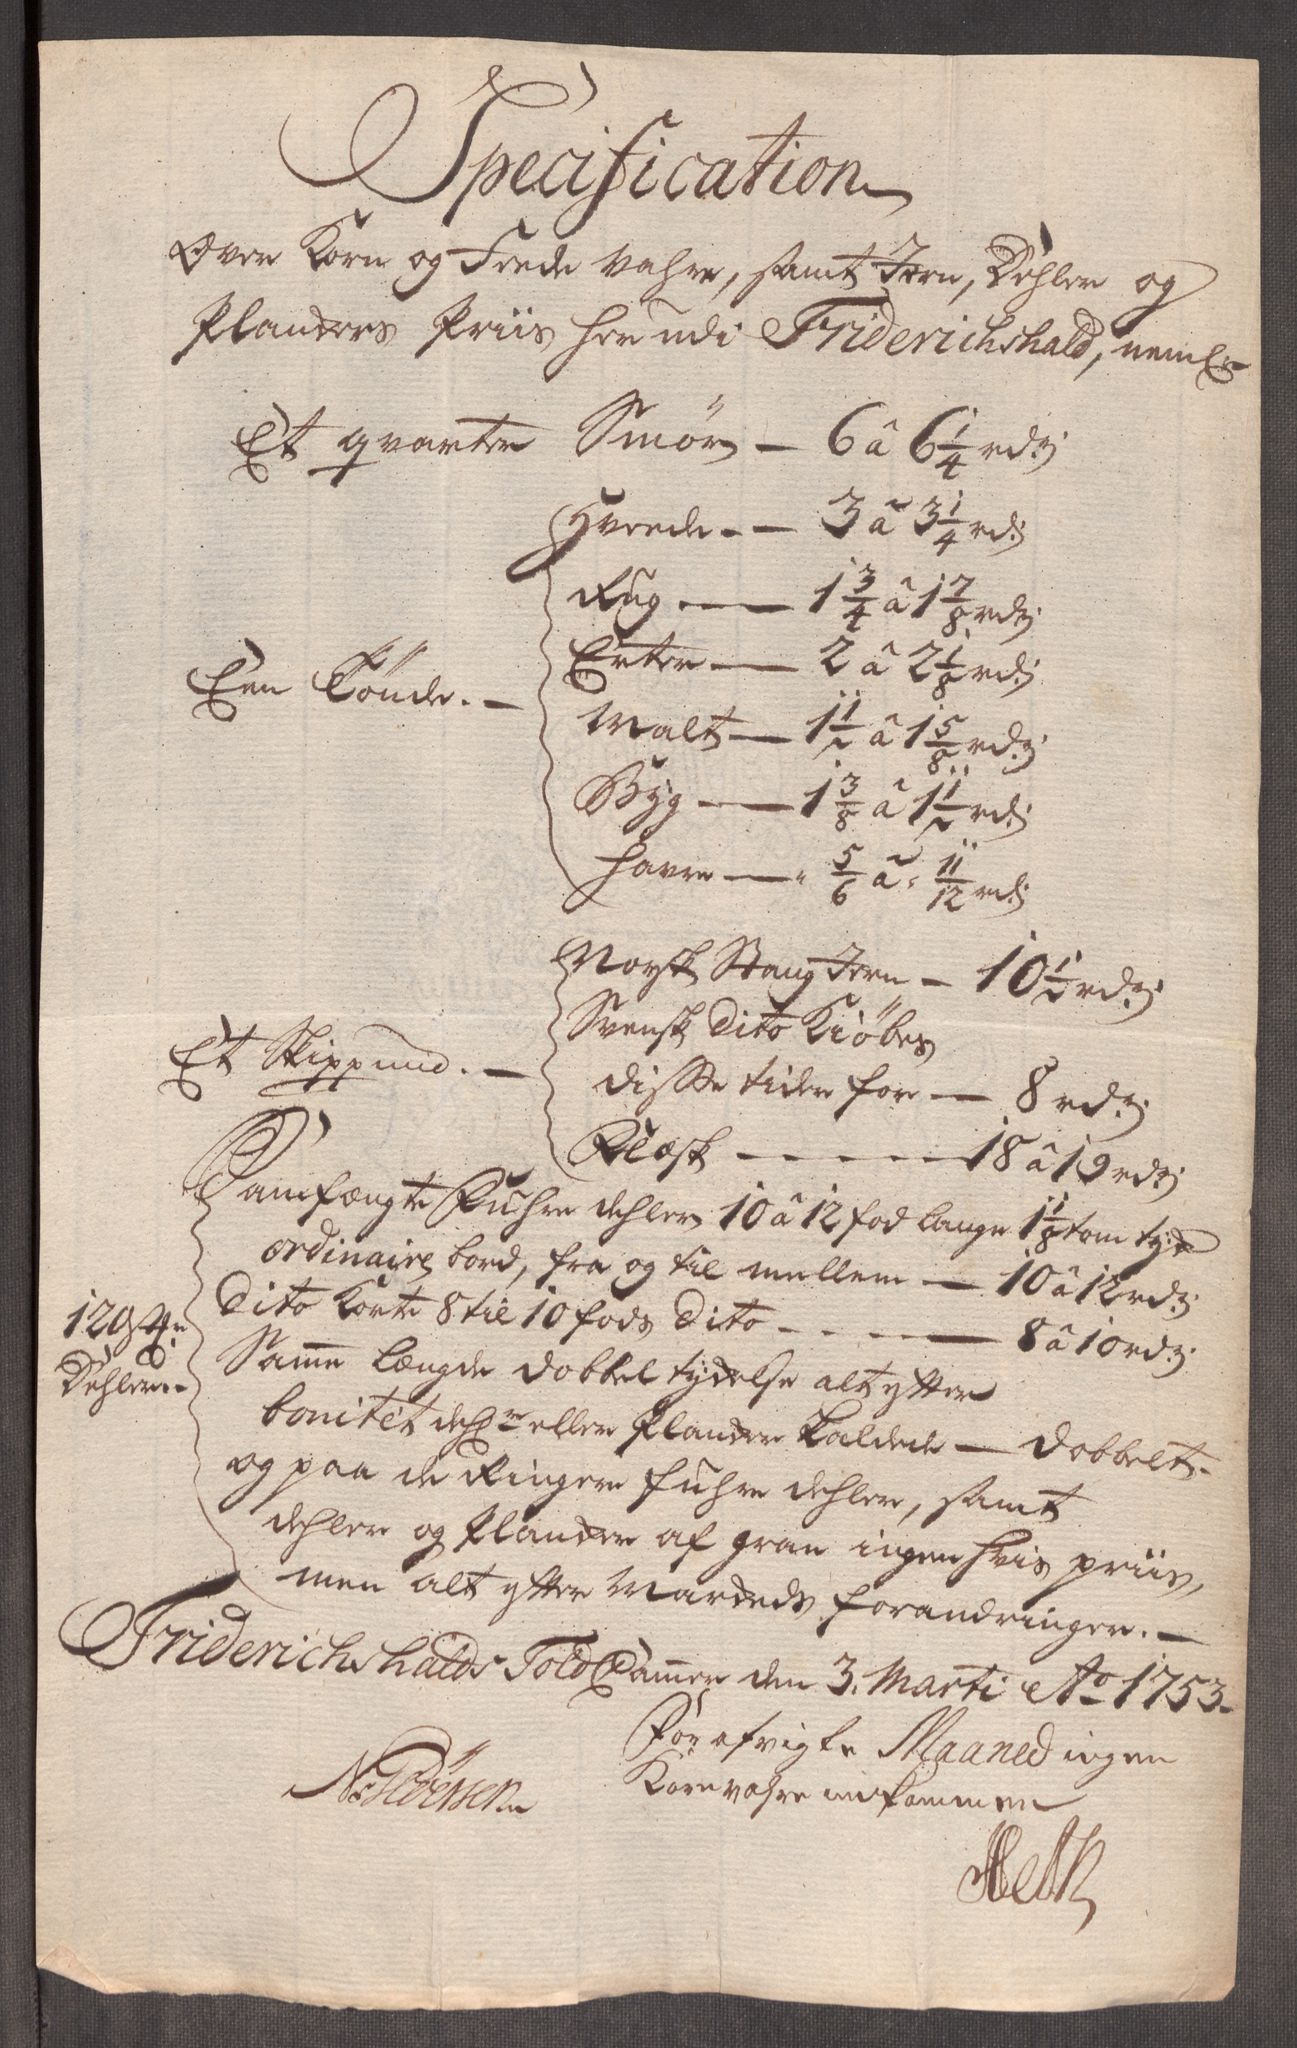 Specification
Over Korn og Feede Vahre, samt Jern, Dehler og
Plankers Priis her udi Friderichshald, neml:
Et qvarter Smör — 6 â 6 1/4 rdr:
Hvede — 3 â 3 1/4 rdr:
Rug — 1 3/4 â 1 7/8 rdr:
Een Tönde. — Erter — 2 â 2 1/8 rdr:
Malt — 1 1/2 â 1 5/8 rdr:
Byg — 1 3/8 â 1 1/2 rdr:
Havre — " 5/6 â " 11/12 rdr:
Norsk Stang Jern — 10 1/2 rdr:
Svensk Dito Kiöbes
Et Skippund. — disse tider for — 8 rdr:
Flæsk — 18 â 19 rdr:
Fuhre dehler 10 â 12 fod lange 1 1/8 tom tyk
ordinaire bord, fra og til mellem — 10 â 12 rdr:
Dito Korte 8 til 10 fods Dito — 8 â 10 rdr:
120 st:
Dehler
Samme Længde dobbel tydelse alt efter
bonitet dehler eller Planker kaldede — dobbelt.
og paa de Ringere fuhre dehler, samt
dehler og Planker af gran ingen vis priis,
men alt efter Markeds forandringer. —
Friderichshalds Told Cammer den 3. Marti Ao 1753.
N: Pedersen
For afvigte Maaned ingen
Kornvahre indkommen